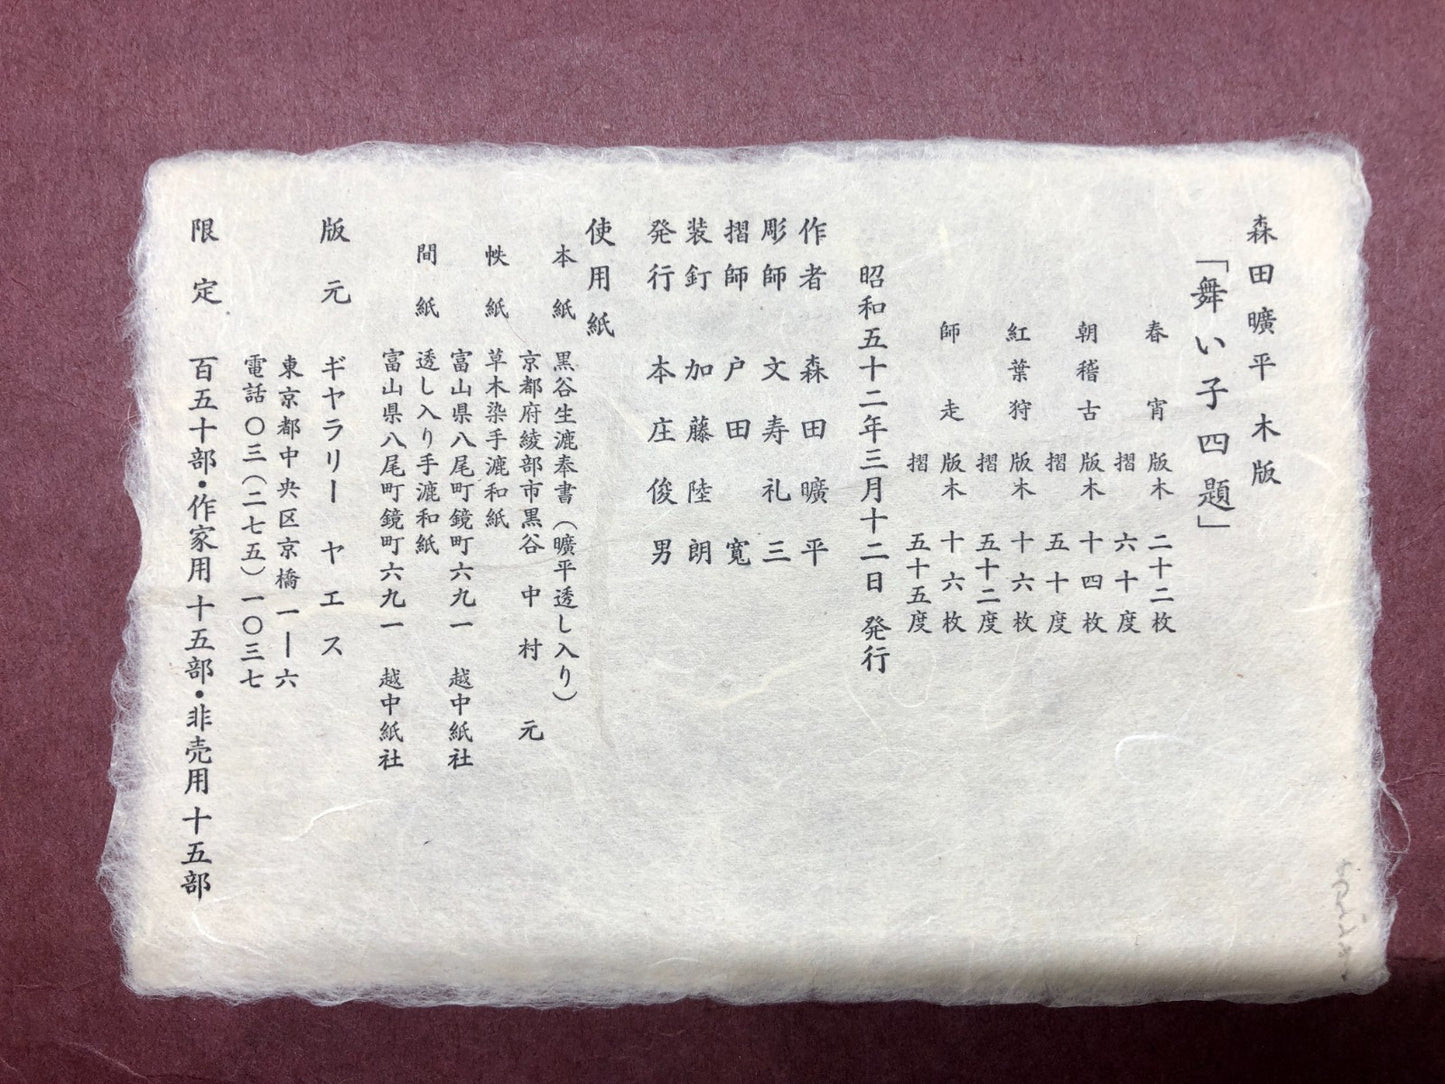 森田曠平 木版
「舞い子四題」
春宵 版木 二十二枚
摺 六十度
朝稽古 版木 十四枚
摺 五十度
紅葉狩 版木 十六枚
摺 五十二度
師走 版木 十六枚
摺 五十五度
昭和五十二年三月十二日 発行
作者 森田曠平
彫師 文寿礼三
摺師 戸田寛
装釘 加藤陸朗
発行 本庄俊男
使用紙
本紙 黒谷生漉奉書(曠平透し入り)
京都府綾部市黒谷 中村元
帙紙 草木染手漉和紙
富山県八尾町鏡町六九一 越中紙社
間紙 透し入り手漉和紙
富山県八尾町鏡町六九一 越中紙社
版元 ギヤラリー ヤエス
東京都中央区京橋一ー六
電話〇三(二七五)一〇三七
限定 百五十部・作家用十五部・非売用十五部